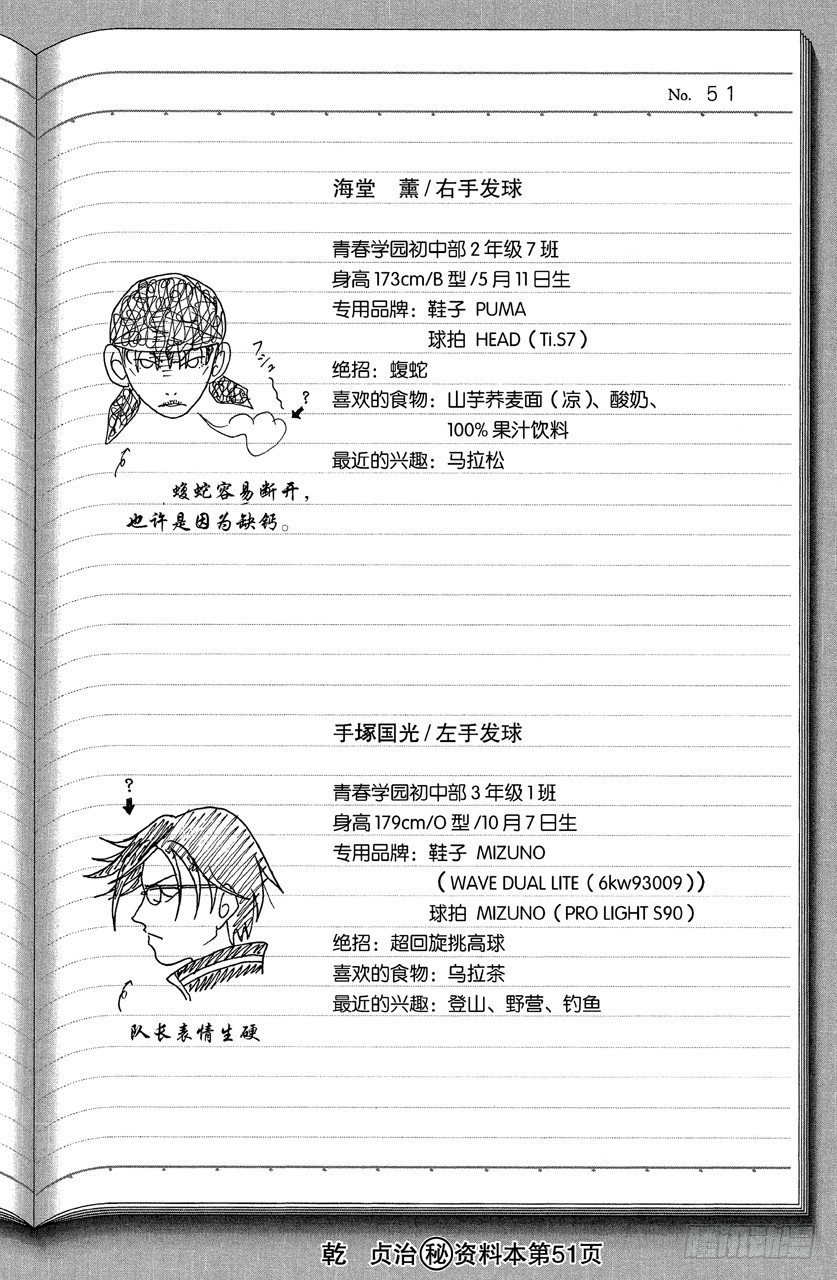 No. 51
海堂 薫/右手发球
青春学园初中部2年级7班
身高173cm/B型/5月11日生
专用品牌：鞋子 PUMA
球拍 HEAD（Ti.S7）
绝招：蝮蛇
喜欢的食物：山芋荞麦面（凉）、酸奶、
100%果汁饮料
最近的兴趣：马拉松
フシュー
?
蝮蛇容易断开，
也许是因为缺钙。
手塚国光/左手发球
青春学园初中部3年级1班
身高179cm/O型/10月7日生
专用品牌：鞋子 MIZUNO
（WAVE DUAL LITE（6kw93009））
球拍 MIZUNO（PRO LIGHT S90）
绝招：超回旋挑高球
喜欢的食物：乌拉茶
最近的兴趣：登山、野营、钓鱼
?
队长表情生硬
乾 贞治㊙资料本第51页